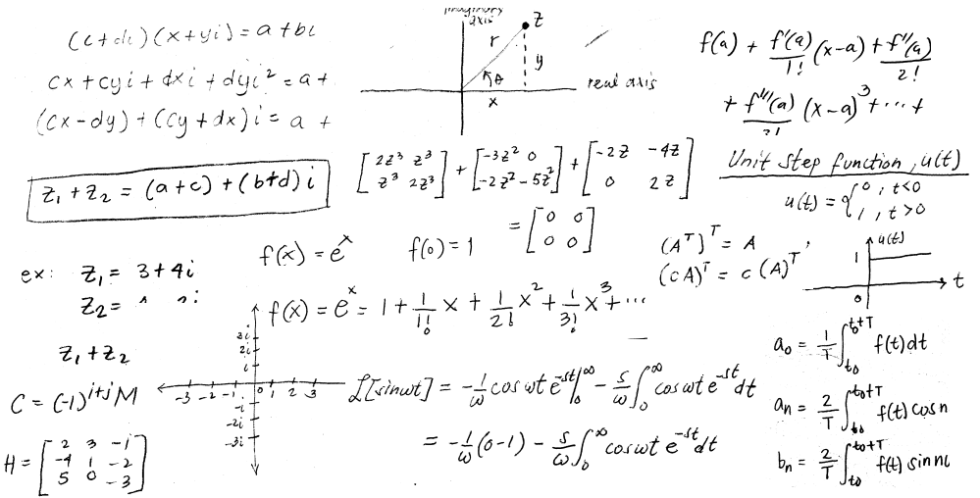 (c+di)(x+yi) = a+bi
cx + cyi + dxi + dyi² = a +
(cx-dy) + (cy+dx)i = a +
z₁ + z₂ = (a+c) + (b+d)i
ex: z₁ = 3+4i
z₂ =
z₁ + z₂
C = (-1)^{i+j} M
H = [2 3 -1; -4 1 -2; 5 0 -3]
imaginary axis
z
r
y
θ
x
real axis
[2z³ z³; z³ 2z³] + [-3z² 0; -2z² -5z²] + [-2z -4z; 0 2z]
= [0 0; 0 0]
f(x) = eˣ f(0) = 1
f(x) = eˣ = 1 + 1/1! x + 1/2! x² + 1/3! x³ + ...
3i
2i
i
-3 -2 -1 0 1 2 3
-i
-2i
-3i
ℒ[sinωt] = -1/ω cosωt e^{-st}|₀^∞ - s/ω ∫₀^∞ cosωt e^{-st} dt
= -1/ω (0-1) - s/ω ∫₀^∞ cosωt e^{-st} dt
f(a) + f'(a)/1! (x-a) + f''(a)/2!
+ f'''(a)/3! (x-a)³ + ... +
Unit step function, u(t)
u(t) = {0, t<0
1, t>0
(Aᵀ)ᵀ = A
(cA)ᵀ = c(A)ᵀ
u(t)
1
t
0
a₀ = 1/T ∫_{t₀}^{t₀+T} f(t)dt
aₙ = 2/T ∫_{t₀}^{t₀+T} f(t) cos n
bₙ = 2/T ∫_{t₀}^{t₀+T} f(t) sin n